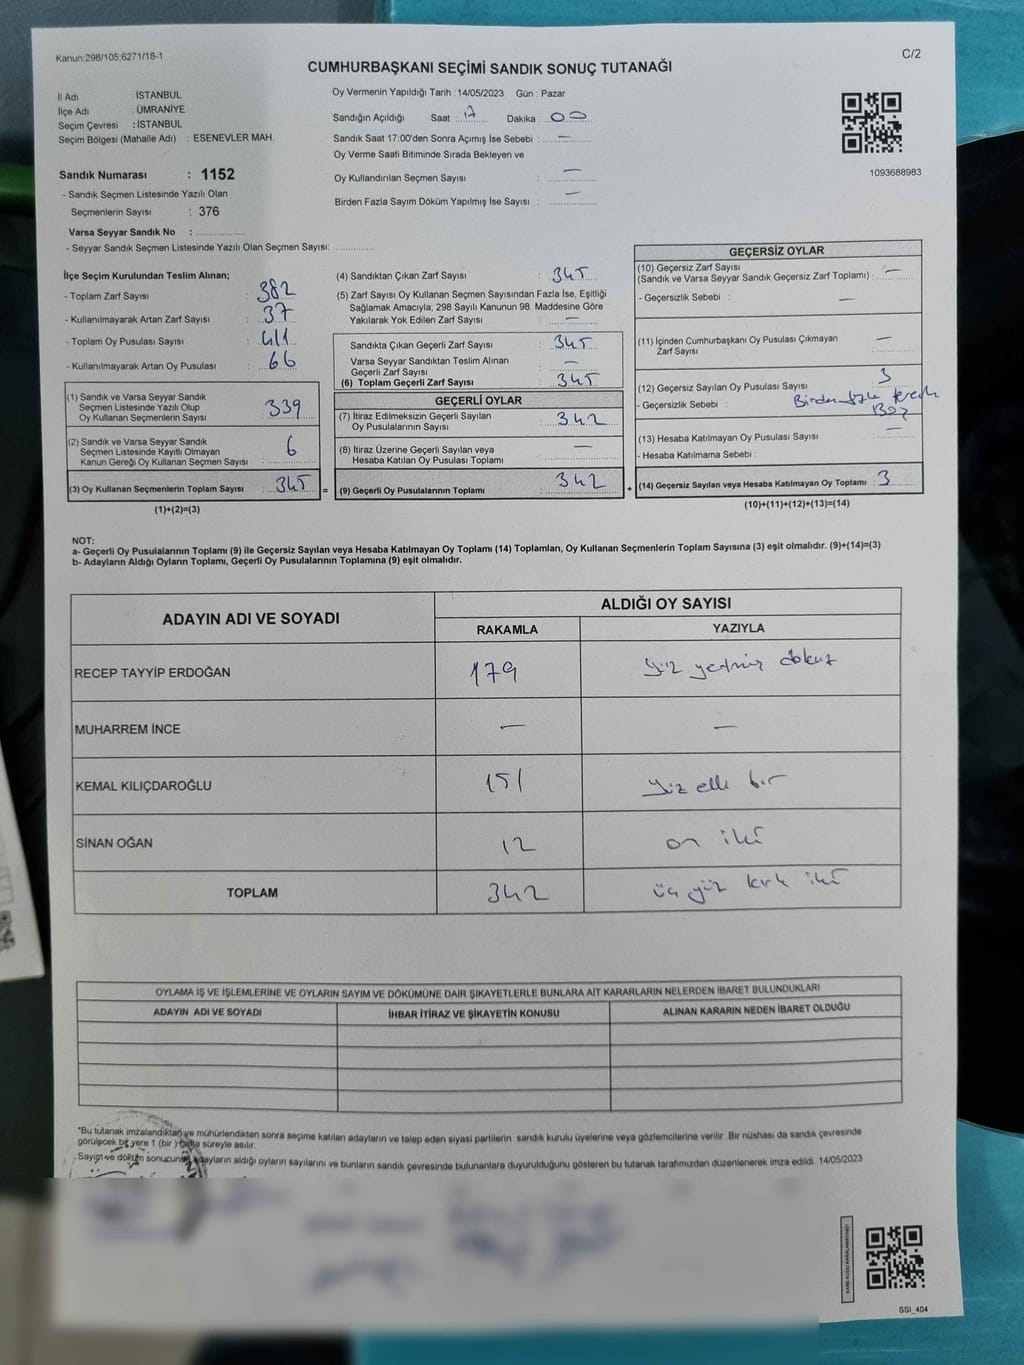 Kanun:298/105,6271/18-1
C/2
CUMHURBAŞKANI SEÇİMİ SANDIK SONUÇ TUTANAĞI
İl Adı : İSTANBUL
İlçe Adı : ÜMRANİYE
Seçim Çevresi : İSTANBUL
Seçim Bölgesi (Mahalle Adı) : ESENEVLER MAH.
Oy Vermenin Yapıldığı Tarih :14/05/2023 Gün : Pazar
Sandığın Açıldığı Saat : 17 Dakika : 00
Sandık Saat 17:00'den Sonra Açımış İse Sebebi : —
Oy Verme Saati Bitiminde Sırada Bekleyen ve
Oy Kullandırılan Seçmen Sayısı : —
Birden Fazla Sayım Döküm Yapılmış İse Sayısı : —
1093688983
Sandık Numarası : 1152
- Sandık Seçmen Listesinde Yazılı Olan
Seçmenlerin Sayısı : 376
Varsa Seyyar Sandık No :
- Seyyar Sandık Seçmen Listesinde Yazılı Olan Seçmen Sayısı:
İlçe Seçim Kurulundan Teslim Alınan;
- Toplam Zarf Sayısı : 382
- Kullanılmayarak Artan Zarf Sayısı : 37
- Toplam Oy Pusulası Sayısı : 411
- Kullanılmayarak Artan Oy Pusulası : 66
(1) Sandık ve Varsa Seyyar Sandık
Seçmen Listesinde Yazılı Olup
Oy Kullanan Seçmenlerin Sayısı : 339
(2) Sandık ve Varsa Seyyar Sandık
Seçmen Listesinde Kayıtlı Olmayan
Kanun Gereği Oy Kullanan Seçmen Sayısı : 6
(3) Oy Kullanan Seçmenlerin Toplam Sayısı : 345 =
(1)+(2)=(3)
(4) Sandıktan Çıkan Zarf Sayısı : 345
(5) Zarf Sayısı Oy Kullanan Seçmen Sayısından Fazla İse, Eşitliği
Sağlamak Amacıyla; 298 Sayılı Kanunun 98. Maddesine Göre
Yakılarak Yok Edilen Zarf Sayısı : —
Sandıkta Çıkan Geçerli Zarf Sayısı : 345
Varsa Seyyar Sandıktan Teslim Alınan
Geçerli Zarf Sayısı : —
(6) Toplam Geçerli Zarf Sayısı : 345
GEÇERLİ OYLAR
(7) İtiraz Edilmeksizin Geçerli Sayılan
Oy Pusulalarının Sayısı : 342
(8) İtiraz Üzerine Geçerli Sayılan veya
Hesaba Katılan Oy Pusulası Toplamı : —
(9) Geçerli Oy Pusulalarının Toplamı : 342 +
GEÇERSİZ OYLAR
(10) Geçersiz Zarf Sayısı
(Sandık ve Varsa Seyyar Sandık Geçersiz Zarf Toplamı) : —
- Geçersizlik Sebebi : —
(11) İçinden Cumhurbaşkanı Oy Pusulası Çıkmayan
Zarf Sayısı : —
(12) Geçersiz Sayılan Oy Pusulası Sayısı : 3
- Geçersizlik Sebebi : Birden fazla tercih
(13) Hesaba Katılmayan Oy Pusulası Sayısı : —
- Hesaba Katılmama Sebebi :
(14) Geçersiz Sayılan veya Hesaba Katılmayan Oy Toplamı : 3
(10)+(11)+(12)+(13)=(14)
NOT:
a- Geçerli Oy Pusulalarının Toplamı (9) ile Geçersiz Sayılan veya Hesaba Katılmayan Oy Toplamı (14) Toplamları, Oy Kullanan Seçmenlerin Toplam Sayısına (3) eşit olmalıdır. (9)+(14)=(3)
b- Adayların Aldığı Oyların Toplamı, Geçerli Oy Pusulalarının Toplamına (9) eşit olmalıdır.
ADAYIN ADI VE SOYADI
ALDIĞI OY SAYISI
RAKAMLA YAZIYLA
RECEP TAYYİP ERDOĞAN 179 Yüz yetmiş dokuz
MUHARREM İNCE — —
KEMAL KILIÇDAROĞLU 151 Yüz elli bir
SİNAN OĞAN 12 on iki
TOPLAM 342 üç yüz kırk iki
OYLAMA İŞ VE İŞLEMLERİNE VE OYLARIN SAYIM VE DÖKÜMÜNE DAİR ŞİKAYETLERLE BUNLARA AİT KARARLARIN NELERDEN İBARET BULUNDUKLARI
ADAYIN ADI VE SOYADI İHBAR İTİRAZ VE ŞİKAYETİN KONUSU ALINAN KARARIN NEDEN İBARET OLDUĞU
*Bu tutanak imzalandıktan ve mühürlendikten sonra seçime katılan adayların ve talep eden siyasi partilerin sandık kurulu üyelerine veya gözlemcilerine verilir. Bir nüshası da sandık çevresinde
görülecek bir yere 1 (bir ) hafta süreyle asılır.
Sayım ve döküm sonucunu, adayların aldığı oyların sayılarını ve bunların sandık çevresinde bulunanlara duyurulduğunu gösteren bu tutanak tarafımızdan düzenlenerek imza edildi. 14/05/2023
SSI_404